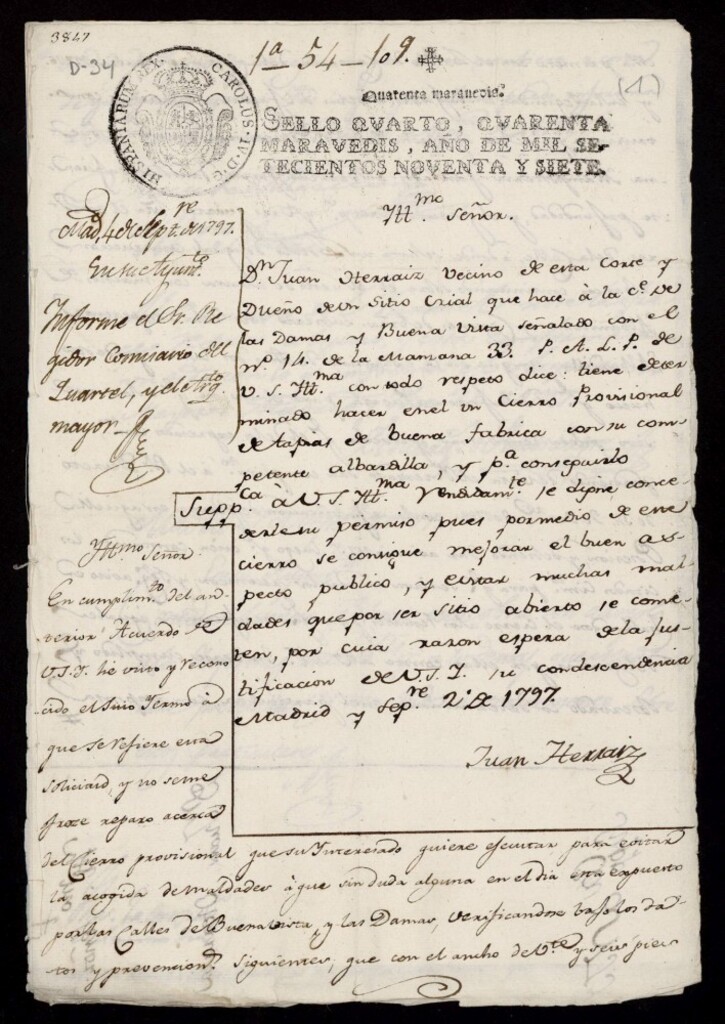 3847
D-34
1ª 54-109.
(1)
HISPANIARUM REX. CAROLUS·IV·D·G·
Quarenta maravedis.
SELLO QVARTO, QVARENTA
MARAVEDIS, AÑO DE MIL SE-
TECIENTOS NOVENTA Y SIETE.
Mad.d 4 de Sept.re de 1797.
En su Ayunt.to
Informe el Sr. Re
gidor Comisario del
Quartel, y el Arq.to
mayor
Yll.mo Señor.
D.n Juan Herraiz Vecino de esta Corte y
Dueño de un Sitio Erial que hace à la C.e de
las Damas y Buena Vista señalado con el
n.º 14. de la Manzana 33. P. A. L. P. de
V. S. Yll.ma con todo respeto dice: tiene deter
minado hacer en el un Cierro Provisional
de tapias de buena fabrica con su com
petente albardilla, y p.a conseguirlo
Supp.ca à V. S. Yll.ma Rendidam.te se digne conce
derle su permiso pues por medio de este
cierro se consigue mejorar el buen as
pecto publico, y evitar muchas mal
dades que por ser sitio abierto se come
ten, por cuia razon espera de la jus
tificacion de V. S. I. su condescendencia
Madrid y Sep.re 2 de 1797.
Juan Herraiz
Yll.mo Señor
En cumplim.to del an
terior Acuerdo de
V.S.I. he visto y recono
cido el Sitio Yermo à
que se refiere esta
solicitud, y no se me
ofrece reparo acerca
del Cierro provisional que su Interesado quiere ejecutar para evitar
la acogida de maldades à que sin duda alguna en el dia esta expuesto
por las Calles de Buenavista, y las Damas, verificandose bajo los da-
tos y prevencion.s siguientes, que con el ancho de v.te y seis pies